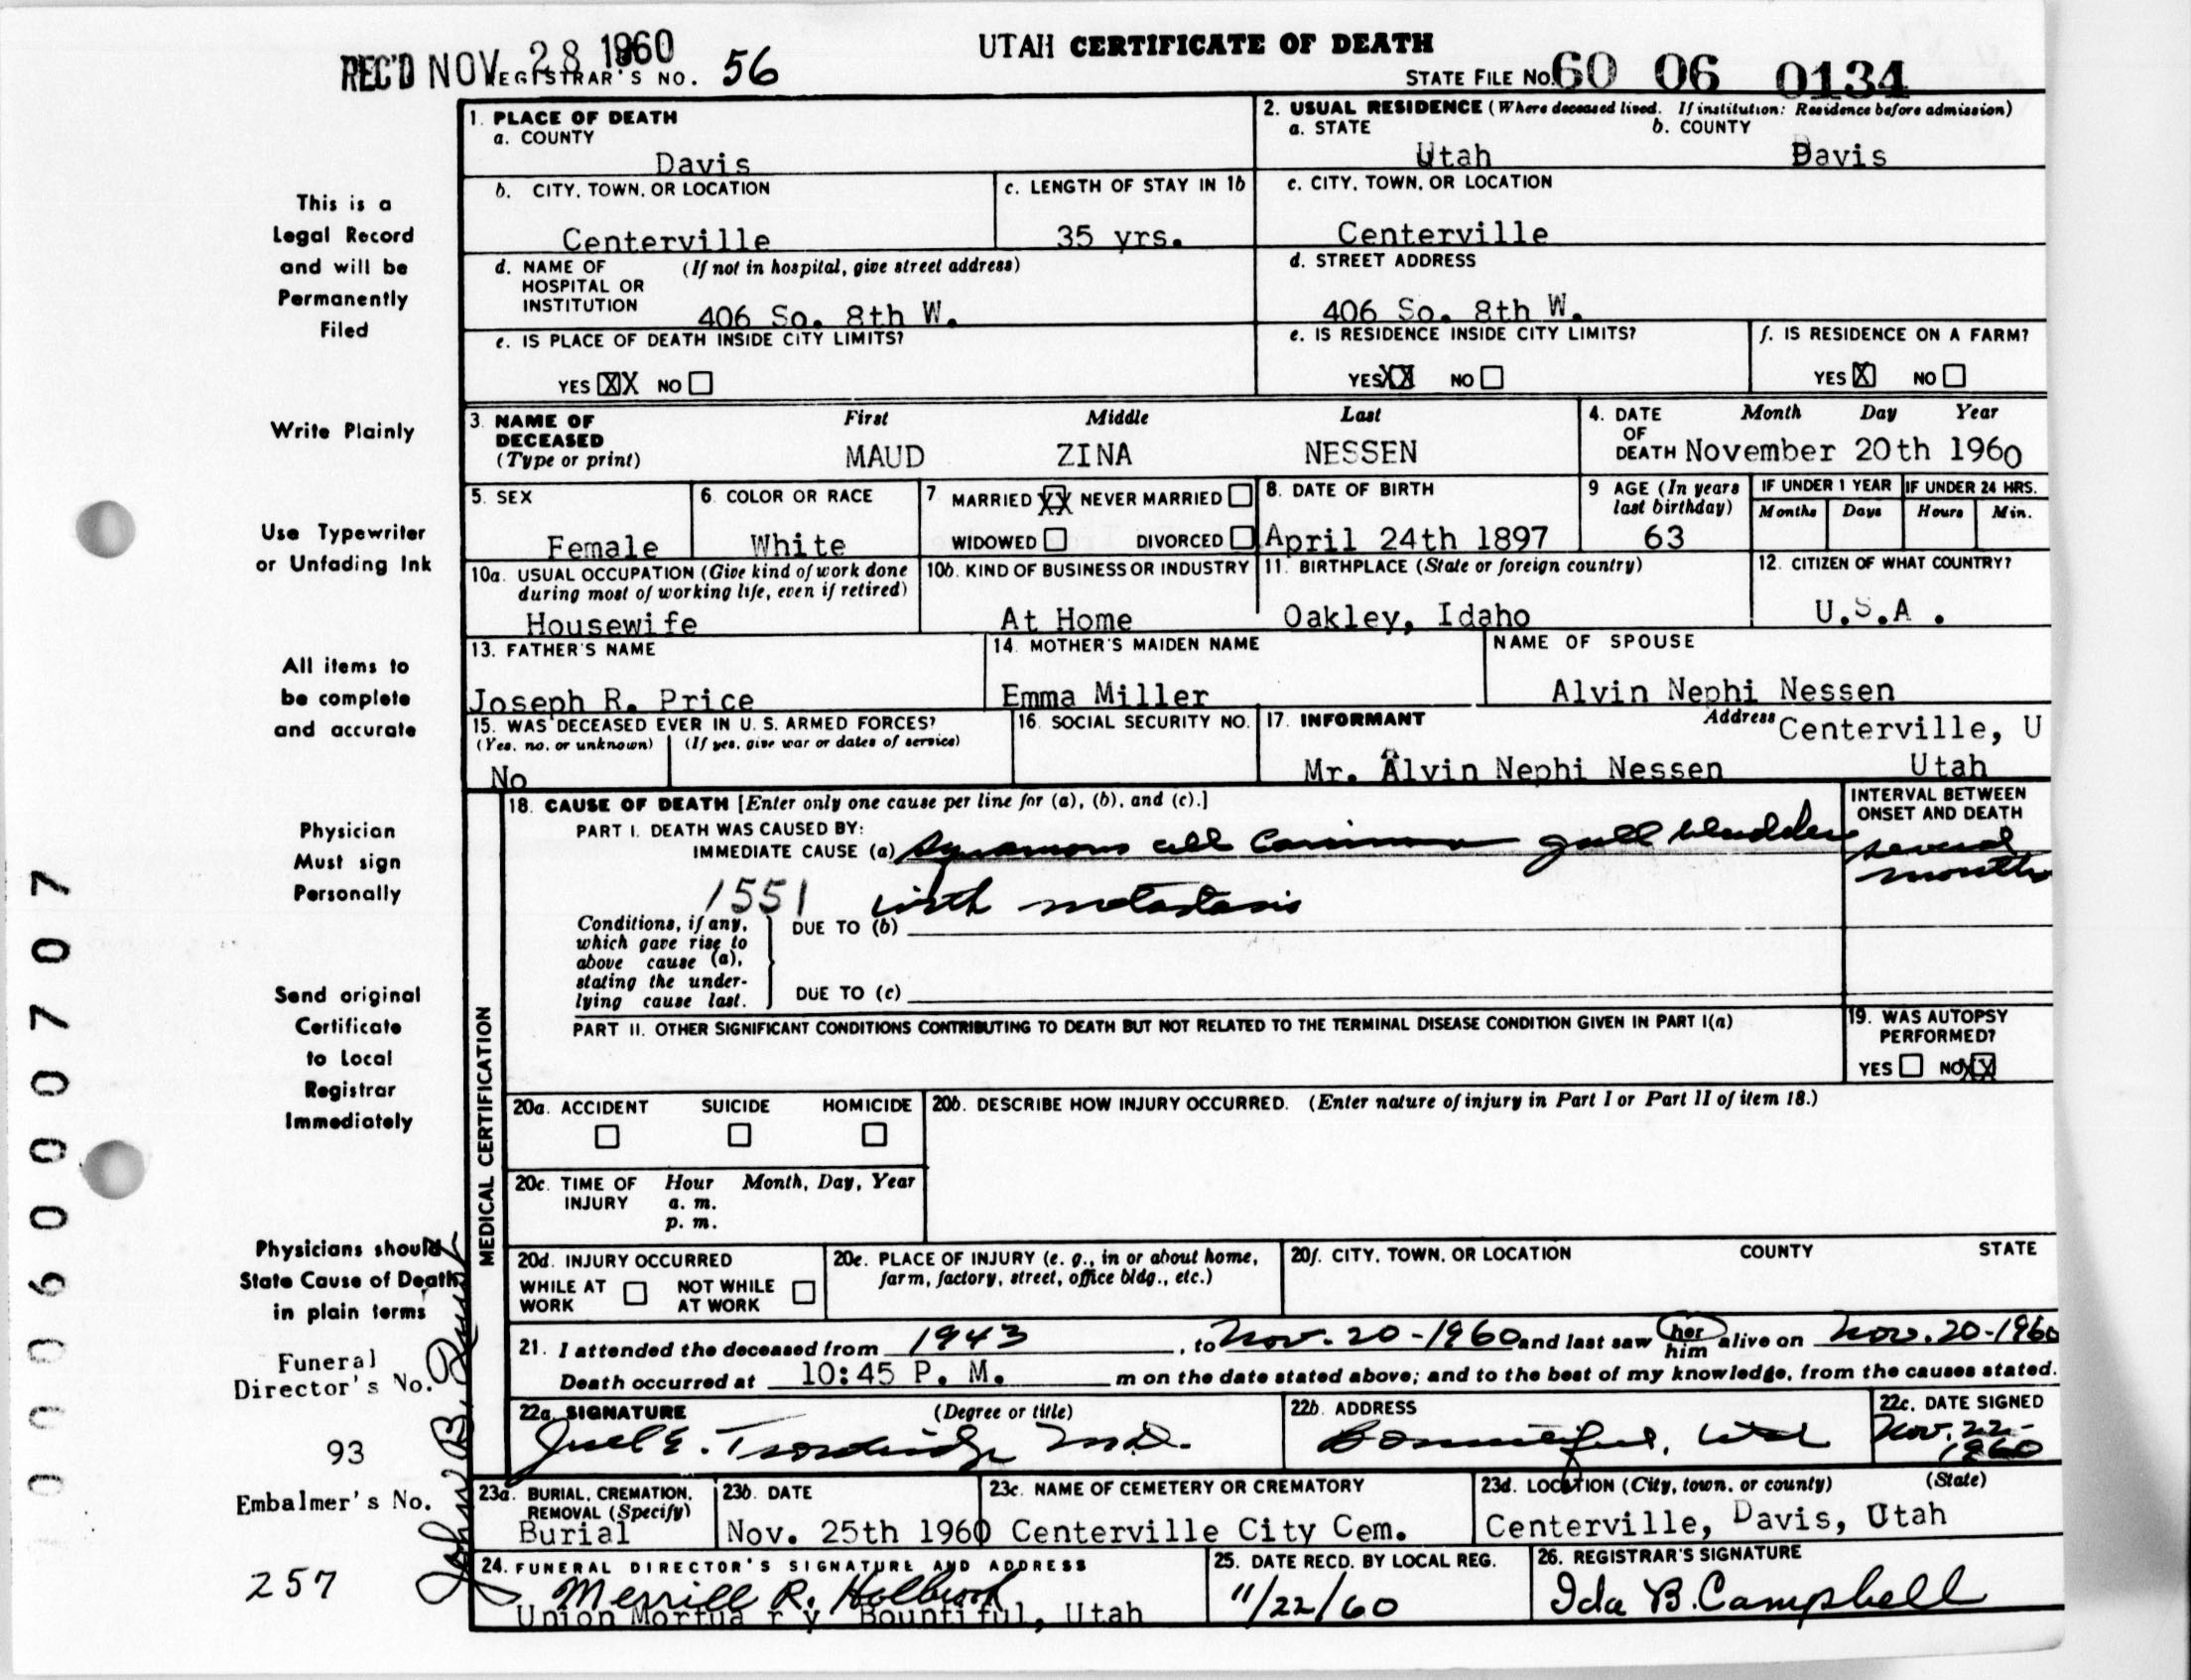 UTAH CERTIFICATE OF DEATH
REC'D NOV 28 1960
REGISTRAR'S NO. 56
STATE FILE NO. 60 06 0134
1. PLACE OF DEATH
a. COUNTY
Davis
2. USUAL RESIDENCE (Where deceased lived. If institution: Residence before admission)
a. STATE b. COUNTY
Utah Davis
b. CITY, TOWN, OR LOCATION
Centerville
c. LENGTH OF STAY IN 1b
35 yrs.
c. CITY, TOWN, OR LOCATION
Centerville
d. NAME OF (If not in hospital, give street address)
HOSPITAL OR
INSTITUTION
406 So. 8th W.
d. STREET ADDRESS
406 So. 8th W.
e. IS PLACE OF DEATH INSIDE CITY LIMITS?
YES XX NO
e. IS RESIDENCE INSIDE CITY LIMITS?
YES XX NO
f. IS RESIDENCE ON A FARM?
YES X NO
3. NAME OF
DECEASED
(Type or print)
First Middle Last
MAUD ZINA NESSEN
4. DATE Month Day Year
OF
DEATH November 20th 1960
5. SEX
Female
6. COLOR OR RACE
White
7. MARRIED XX NEVER MARRIED
WIDOWED DIVORCED
8. DATE OF BIRTH
April 24th 1897
9 AGE (In years
last birthday)
63
IF UNDER 1 YEAR
Months Days
IF UNDER 24 HRS.
Hours Min.
10a. USUAL OCCUPATION (Give kind of work done
during most of working life, even if retired)
Housewife
10b. KIND OF BUSINESS OR INDUSTRY
At Home
11. BIRTHPLACE (State or foreign country)
Oakley, Idaho
12. CITIZEN OF WHAT COUNTRY?
U.S.A .
13. FATHER'S NAME
Joseph R. Price
14. MOTHER'S MAIDEN NAME
Emma Miller
NAME OF SPOUSE
Alvin Nephi Nessen
15. WAS DECEASED EVER IN U. S. ARMED FORCES?
(Yes, no, or unknown) (If yes, give war or dates of service)
No
16. SOCIAL SECURITY NO.
17. INFORMANT Address Centerville, U
Mr. Alvin Nephi Nessen Utah
MEDICAL CERTIFICATION
18. CAUSE OF DEATH [Enter only one cause per line for (a), (b), and (c).]
PART I. DEATH WAS CAUSED BY:
IMMEDIATE CAUSE (a) squamous cell Carcinoma gall bladder
1551 with metastasis
INTERVAL BETWEEN
ONSET AND DEATH
several
months
Conditions, if any,
which gave rise to
above cause (a),
stating the under-
lying cause last.
DUE TO (b)
DUE TO (c)
PART II. OTHER SIGNIFICANT CONDITIONS CONTRIBUTING TO DEATH BUT NOT RELATED TO THE TERMINAL DISEASE CONDITION GIVEN IN PART I(a)
19. WAS AUTOPSY
PERFORMED?
YES NO XX
20a. ACCIDENT SUICIDE HOMICIDE
20b. DESCRIBE HOW INJURY OCCURRED. (Enter nature of injury in Part I or Part II of item 18.)
20c. TIME OF Hour Month, Day, Year
INJURY a. m.
p. m.
20d. INJURY OCCURRED
WHILE AT NOT WHILE
WORK AT WORK
20e. PLACE OF INJURY (e. g., in or about home,
farm, factory, street, office bldg., etc.)
20f. CITY, TOWN, OR LOCATION COUNTY STATE
21. I attended the deceased from 1943, to Nov. 20-1960 and last saw her him alive on Nov. 20-1960
Death occurred at 10:45 P. M. m on the date stated above; and to the best of my knowledge, from the causes stated.
22a. SIGNATURE (Degree or title)
M.D.
22b. ADDRESS
Bountiful, Utah
22c. DATE SIGNED
Nov. 22-
1960
23a. BURIAL, CREMATION,
REMOVAL (Specify)
Burial
23b. DATE
Nov. 25th 1960
23c. NAME OF CEMETERY OR CREMATORY
Centerville City Cem.
23d. LOCATION (City, town, or county) (State)
Centerville, Davis, Utah
24. FUNERAL DIRECTOR'S SIGNATURE AND ADDRESS
Merrill R. Holbrook
Union Mortua r y Bountiful, Utah
25. DATE RECD. BY LOCAL REG.
11/22/60
26. REGISTRAR'S SIGNATURE
Ida B. Campbell
This is a
Legal Record
and will be
Permanently
Filed
Write Plainly
Use Typewriter
or Unfading Ink
All items to
be complete
and accurate
Physician
Must sign
Personally
Send original
Certificate
to Local
Registrar
Immediately
Physicians should
State Cause of Death
in plain terms
Funeral
Director's No.
93
Embalmer's No.
257
John B.
0006000707